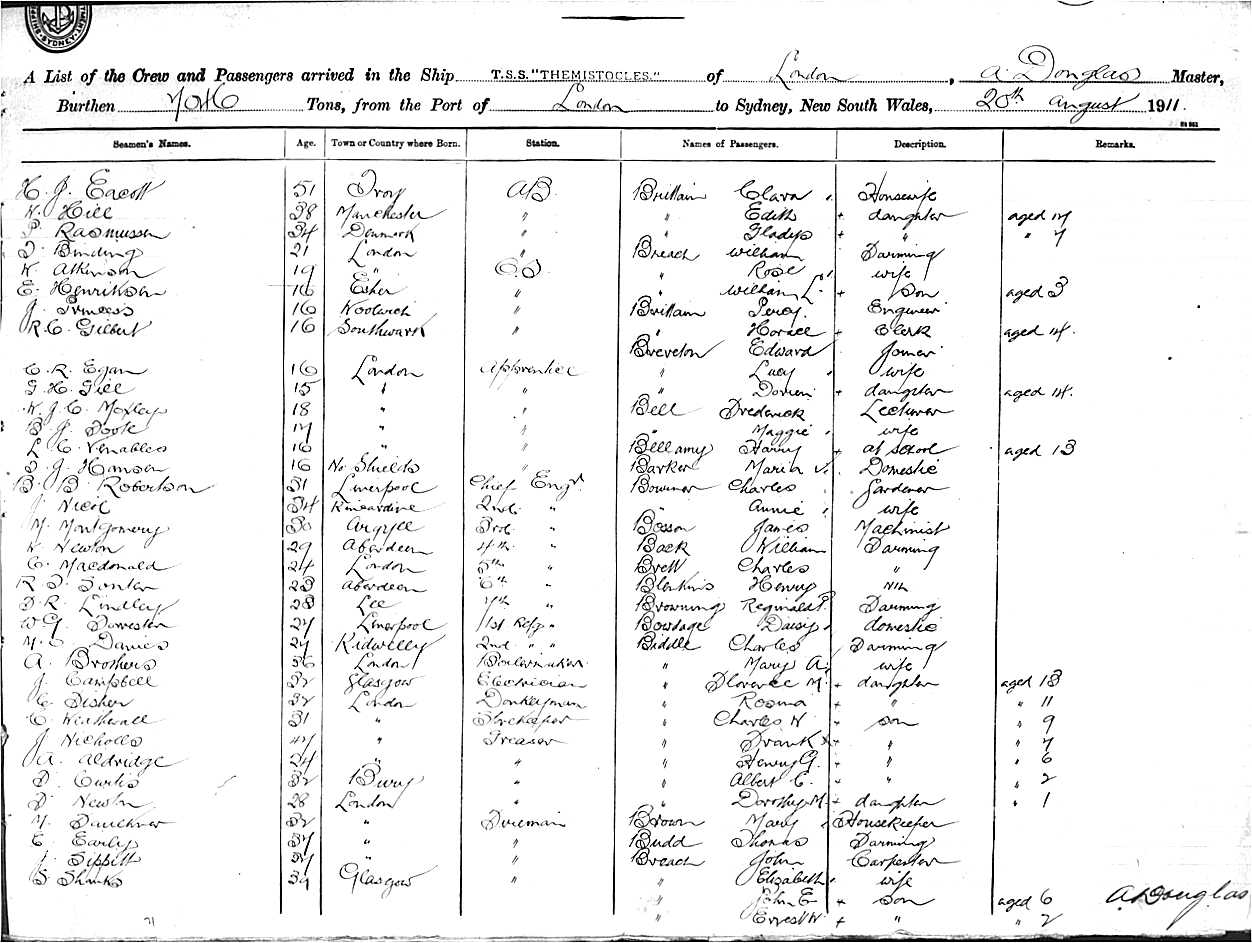 SYDNEY
A List of the Crew and Passengers arrived in the Ship T.S.S. "THEMISTOCLES." of London, A. Douglas Master,
Burthen Tons, from the Port of London to Sydney, New South Wales, 20th August 1911.
Seamen's Names. Age. Town or Country where Born. Station. Names of Passengers. Description. Remarks.
C. J. Eacott 51 Troy AB Brittain Clara Housewife
W. Hill 38 Manchester " " Edith + daughter aged 17
P. Rasmussen 34 Denmark " " Gladys + " " 7
T. Binding 21 London " Breach William Farming
W. Atkinson 19 " O.S. " Rose wife
E. Henrikson 16 Esher " " William L. + son aged 3
J. Princess 16 Woolwich " Brittain Percy Engineer
R. C. Gilbert 16 Southwark " " Horace + Clerk aged 14.
Brereton Edward Joiner
C. R. Egan 16 London Apprentice " Lucy wife
G. H. Gill 15 " " " Doreen + daughter aged 14.
W. J. C. Moxley 18 " " Bell Frederick Lecturer
B. J. Foote 17 " " " Maggie wife
L. C. Venables 16 " " Bellamy Harry + at school aged 13
T. J. Hanson 16 No. Shields " Barker Maria V. Domestic
B. B. Robertson 31 Liverpool Chief Engr. Bowmer Charles Gardener
J. Nicol 34 Kincardine 2nd " " Annie wife
M. Montgomery 30 Argyll 3rd " Bosson James Machinist
W. Newton 29 Aberdeen 4th " Back William Farming
C. Macdonald 24 London 5th " Brett Charles "
R. T. Souter 23 Aberdeen 6th " Blenkins Henry Nil
F. R. Lindley 23 Lee 7th " Browning Reginald P. Farming
W. G. Forrester 27 Liverpool 1st Refg " Bowdage Daisy domestic
M. C. Davies 27 Kidwelly 2nd " " Biddle Charles Farming
A. Brothers 56 London Boilermaker " Mary A. wife
J. Campbell 32 Glasgow Electrician " Florence M. + daughter aged 13
C. Fisher 32 London Donkeyman " Rosina + " " 11
C. 31 " Storekeeper " Charles W + son " 9
J. Nicholls 47 " Greaser " Frank + " " 7
A. Aldridge 24 " " " Henry G. + " " 6
F. Curtis 32 Bury " " Albert E. + " " 2
F. Newton 28 London " " Dorothy M. + daughter " 1
M. Faulkner 32 " Fireman Brown Mary Housekeeper
E. Early 37 " " Budd Thomas Farming
J. Sippitt 37 " " Breach John Carpenter
S. Shanks 39 Glasgow " " Elizabeth wife
" John E + son aged 6 A. Douglas
" Ernest W + " " 2